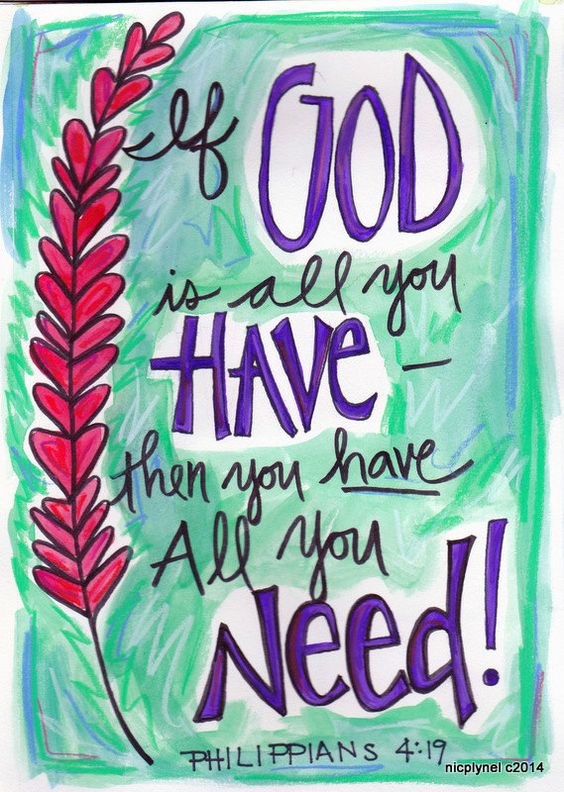 If GOD
is all you
HAVE —
then you have
All you
Need!
PHILIPPIANS 4:19
nicplynel c2014